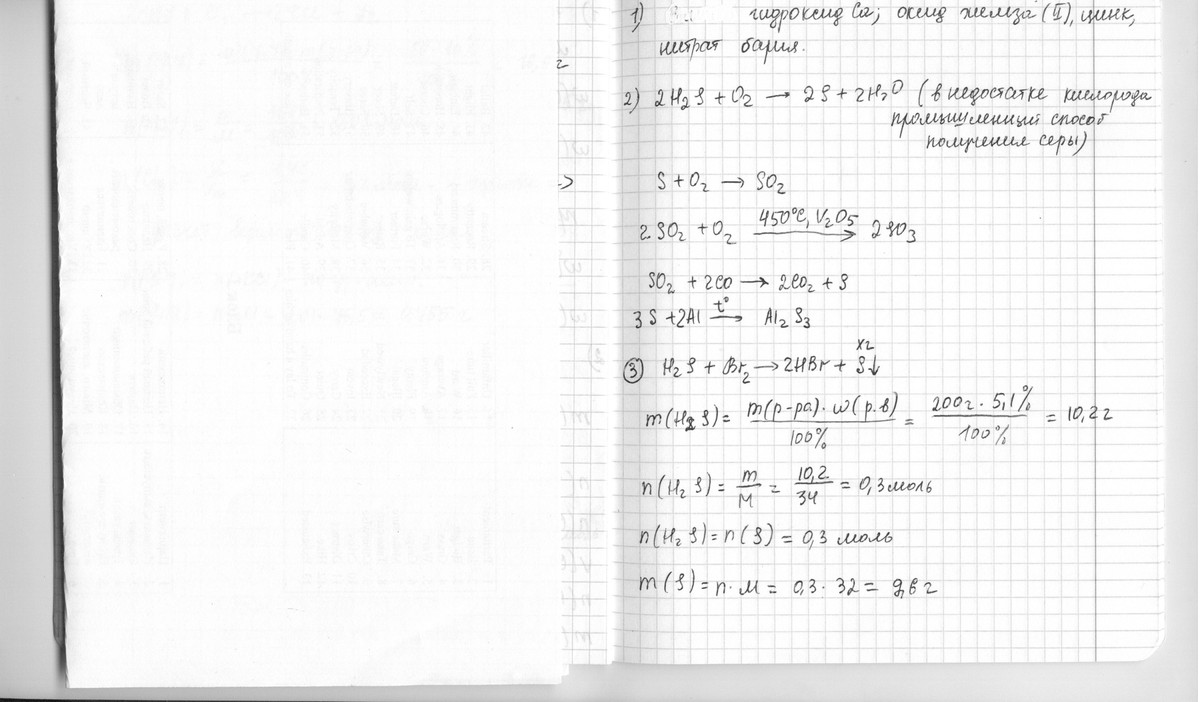 1) гидроксид Ca; оксид железа (II), цинк,
нитрат бария.
2) 2H₂S + O₂ → 2S + 2H₂O (в недостатке кислорода
промышленный способ
получения серы)
S + O₂ → SO₂
2SO₂ + O₂ 450°C, V₂O₅ → 2SO₃
SO₂ + 2CO → 2CO₂ + S
3S + 2Al t° → Al₂S₃
xг
③ H₂S + Br₂ → 2HBr + S↓
m(H₂S) = m(р-ра)·w(р.в)/100% = 200г · 5,1%/100% = 10,2 г
n(H₂S) = m/M = 10,2/34 = 0,3 моль
n(H₂S) = n(S) = 0,3 моль
m(S) = n·M = 0,3 · 32 = 9,6 г